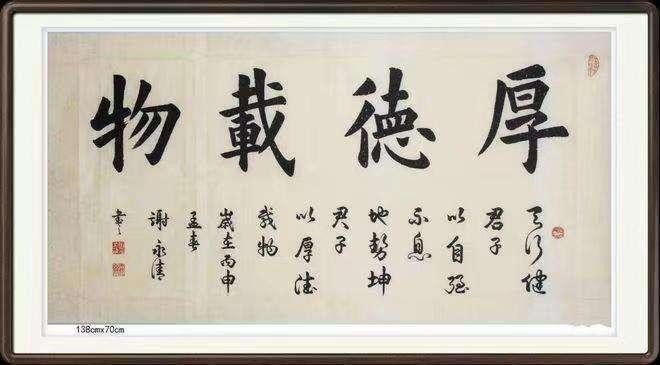 厚德載物
天行健
君子
以自强
不息
地势坤
君子
以厚德
载物
歲在丙申
孟春
謝永清
書
138cmx70cm